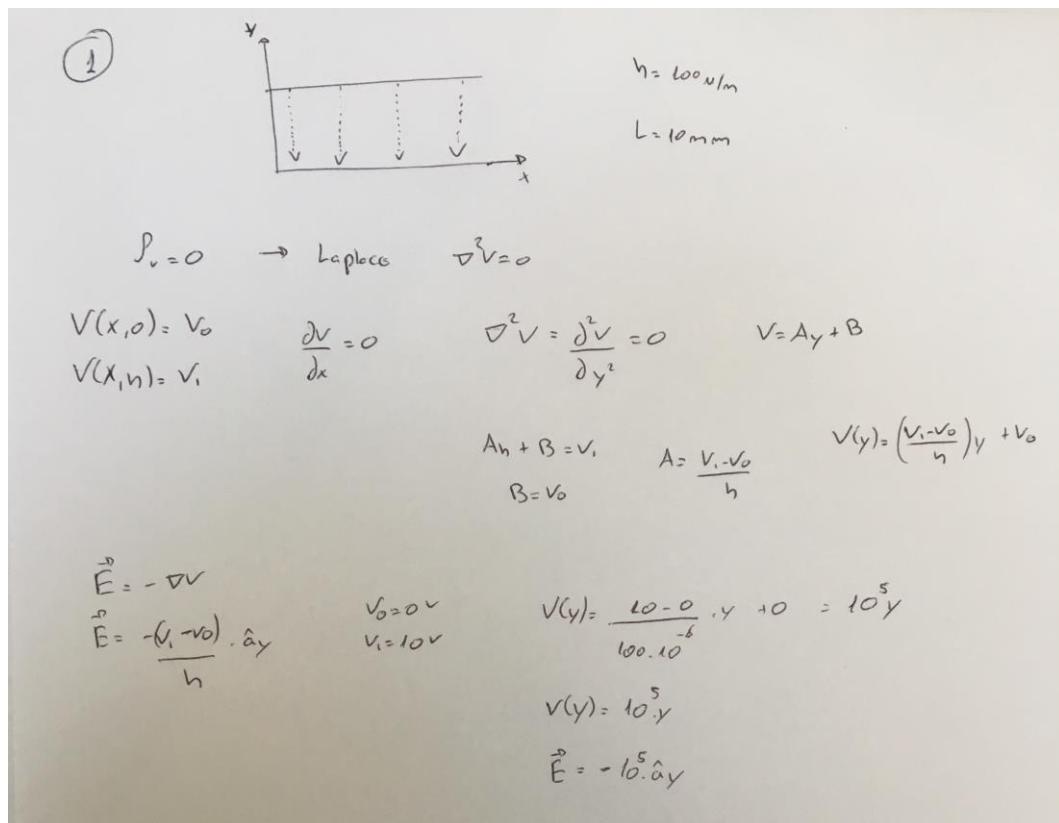 1
y
h = 100 N/m
L = 10 mm
x
ρ_v = 0 → Laplace ∇²V = 0
V(x,0) = V₀
V(x,h) = V₁
∂V/∂x = 0
∇²V = ∂²V/∂y² = 0
V = Ay + B
Ah + B = V₁
B = V₀
A = (V₁-V₀)/h
V(y) = ((V₁-V₀)/h)y + V₀
E⃗ = -∇V
E⃗ = -(V₁-V₀)/h · ây
V₀ = 0 V
V₁ = 10 V
V(y) = (10-0)/(100·10⁻⁶) · y + 0 = 10⁵y
V(y) = 10⁵·y
E⃗ = -10⁵·ây